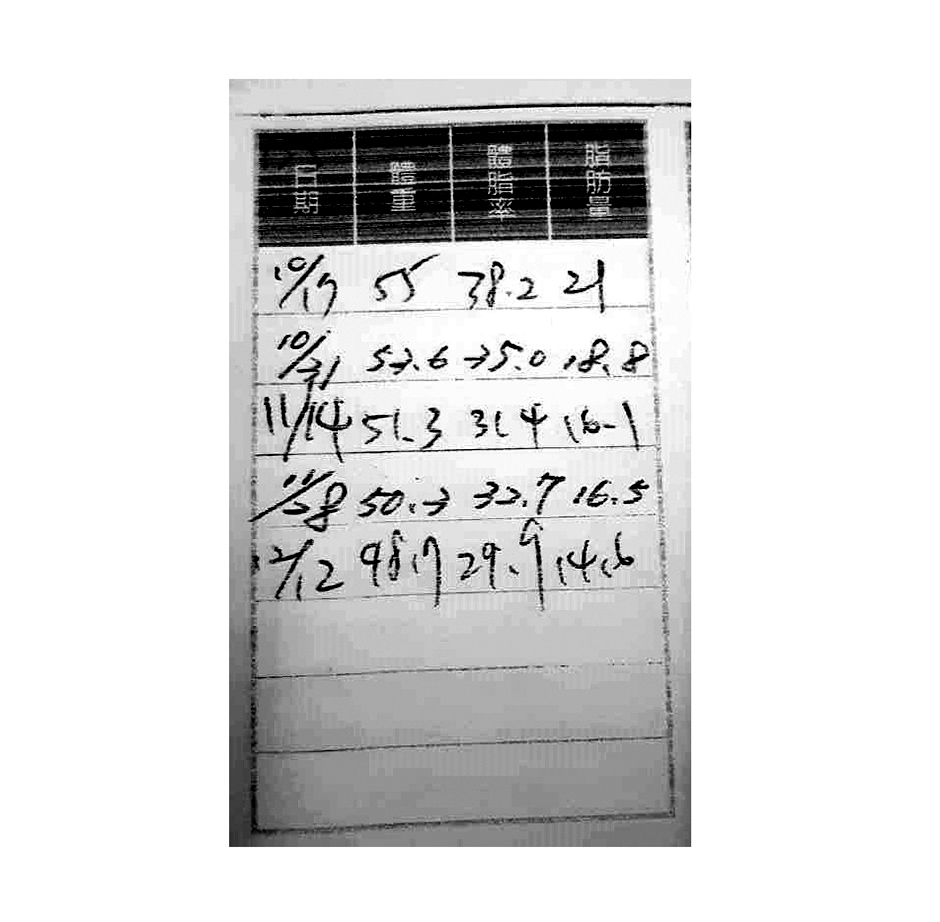 日期 體重 體脂率 脂肪量
10/17 55 38.2 21
10/31 53.6 35.0 18.8
11/14 51.3 31.4 16.1
11/28 50.3 32.7 16.5
12/12 48.7 29.9 14.6